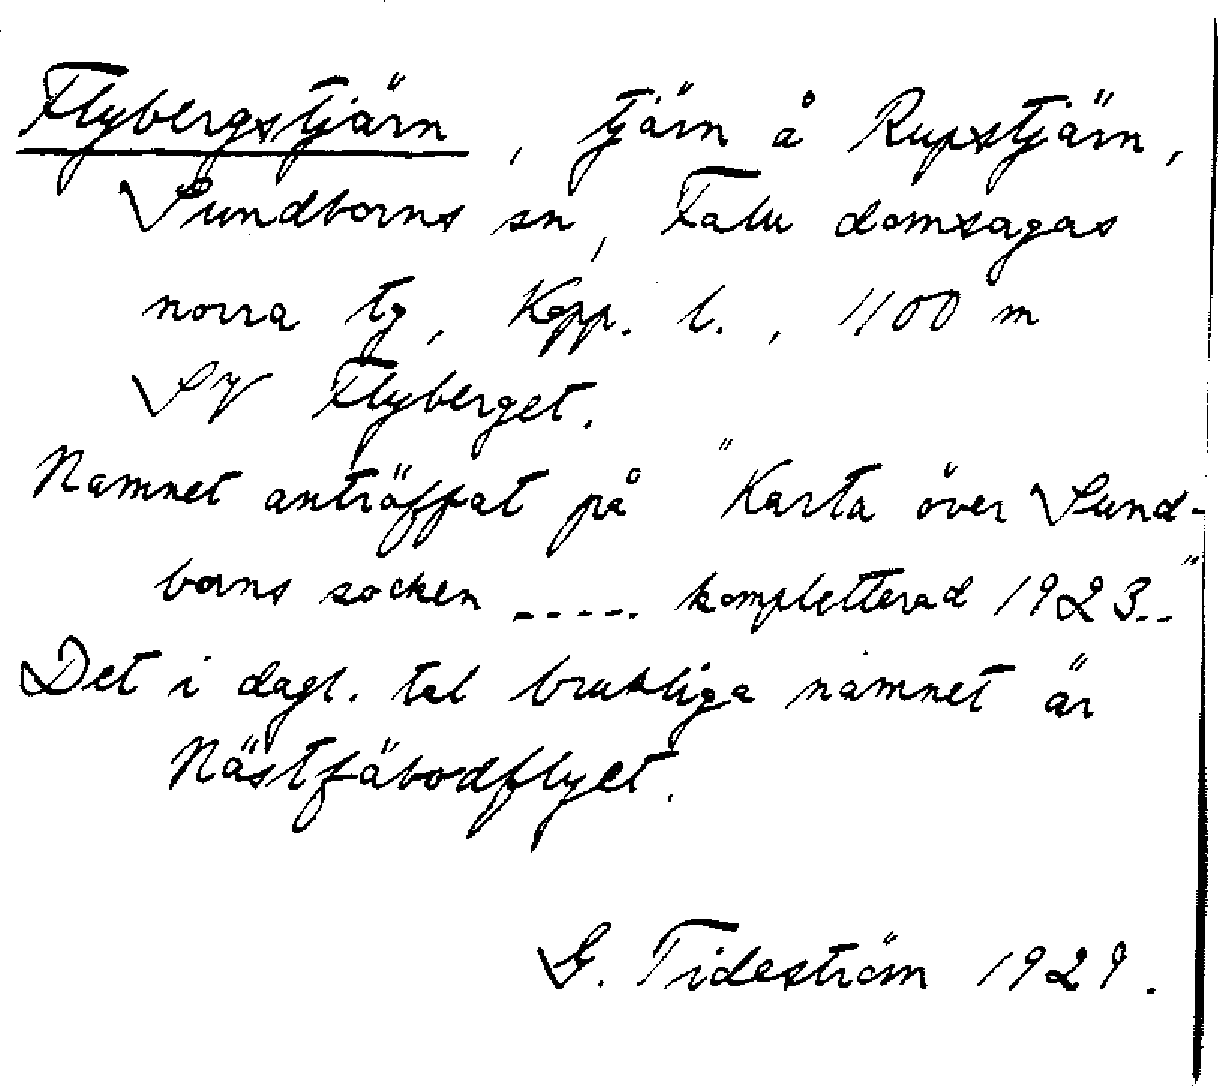 Flybergstjärn, tjärn å Rupstjärn,
Sundborns sn, Falu domsagas
norra tg, Kopp. l., 1100 m
SV Flyberget.
Namnet anträffat på "Karta över Sund-
borns socken ----- kompletterad 1923.."
Det i dagl. tal brukliga namnet är
Nästfäbodflyet.
G. Tideström 1929.